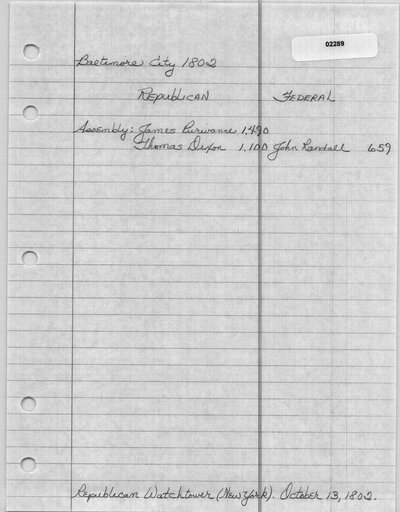 02289
Baltimore City 1802
Republican Federal
Assembly: James Purviance 1.490
Thomas Dixon 1.100 John Randall 659
Republican Watchtower (New York). October 13, 1802.